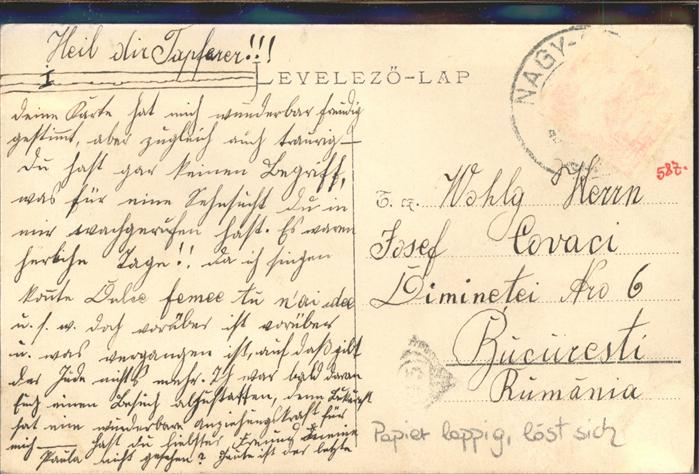 Heil dir Tapferer!!!
I
LEVELEZŐ-LAP
NAGY-
587.
deine Karte hat mich wunderbar freudig
gestimmt, aber zugleich auch traurig —
Du hast gar keinen Begriff,
was für eine Sehnsucht du in
mir wachgerufen hast. Es waren
herrliche Tage!! da ich singen
konnte Dulce femee tu n'ai dee
u. s. w. doch vorüber ist vorüber
u. was vergangen ist, auf daß gibt
der Jude nichts mehr. Ich war bald daran
Euch einen Besuch abzustatten, denn Bukarest
hat eine wunderbare Anziehungskraft für
mich — hast du liebster Freund meine
Paula nicht gesehen? Heute ist der letzte
T. cz. Wohlg Herrn
Josef Covaci
Diminetei Nro 6
Bucuresti
Rumánia
Papier lappig, löst sich